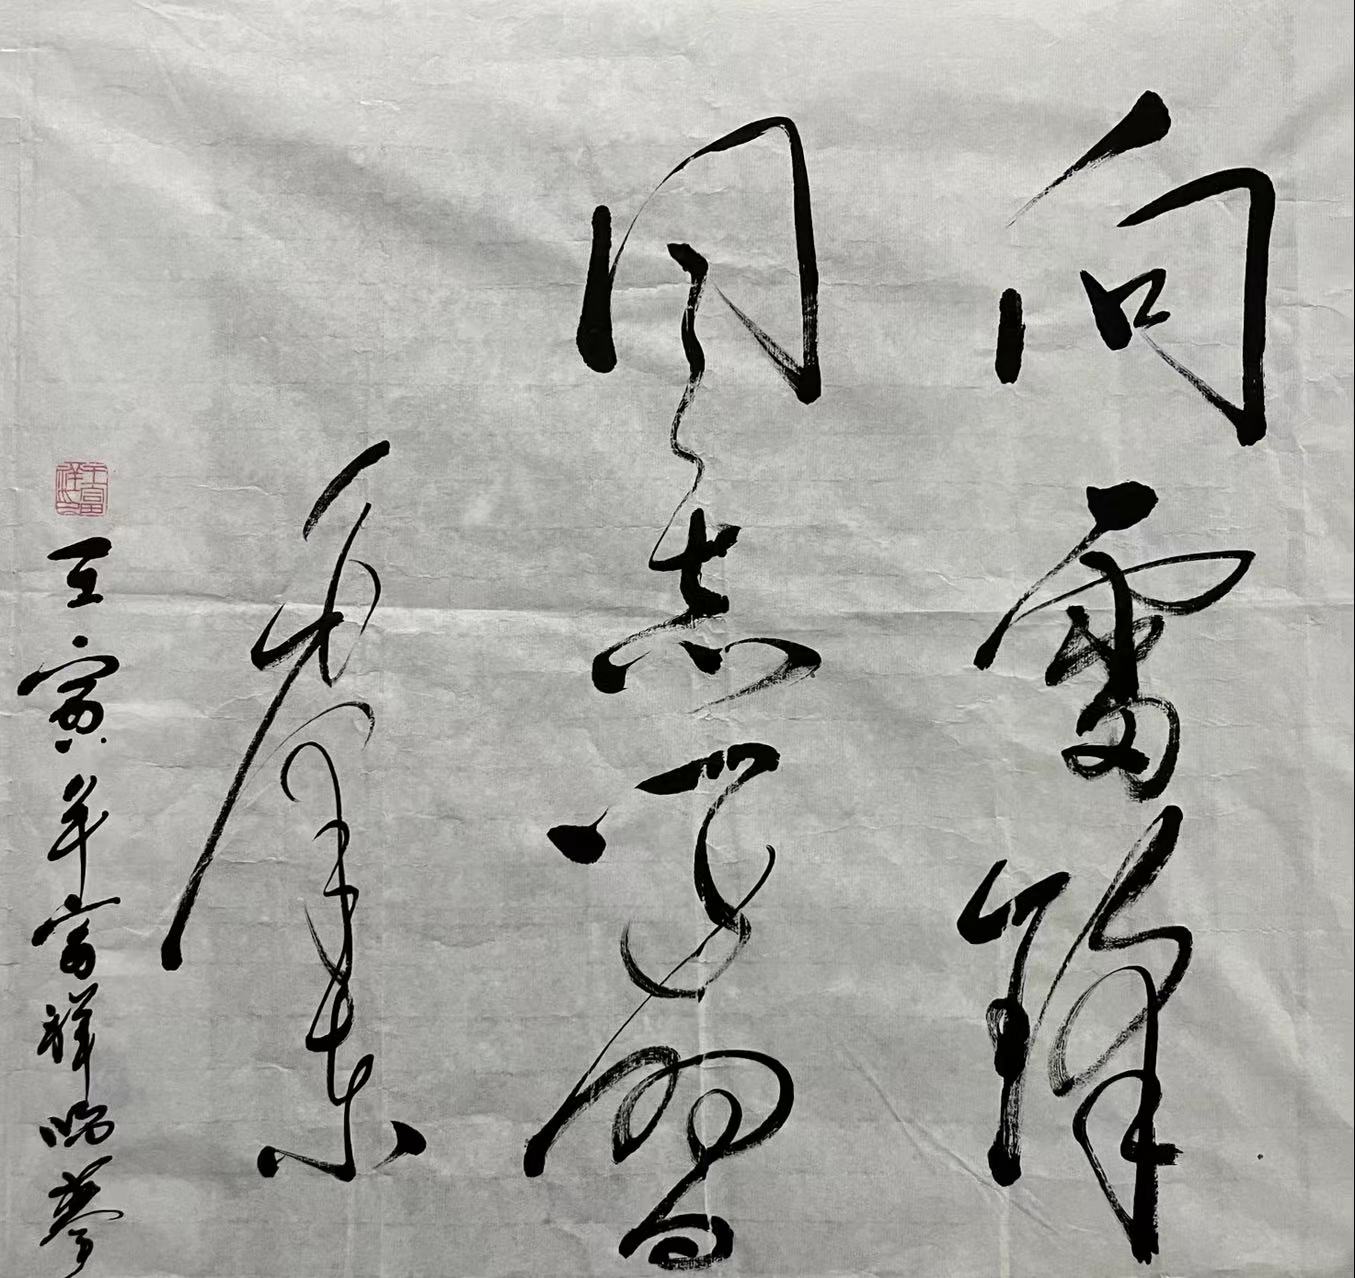 向雷锋
同志学习
毛泽东
壬寅年富祥临摹
王富祥印